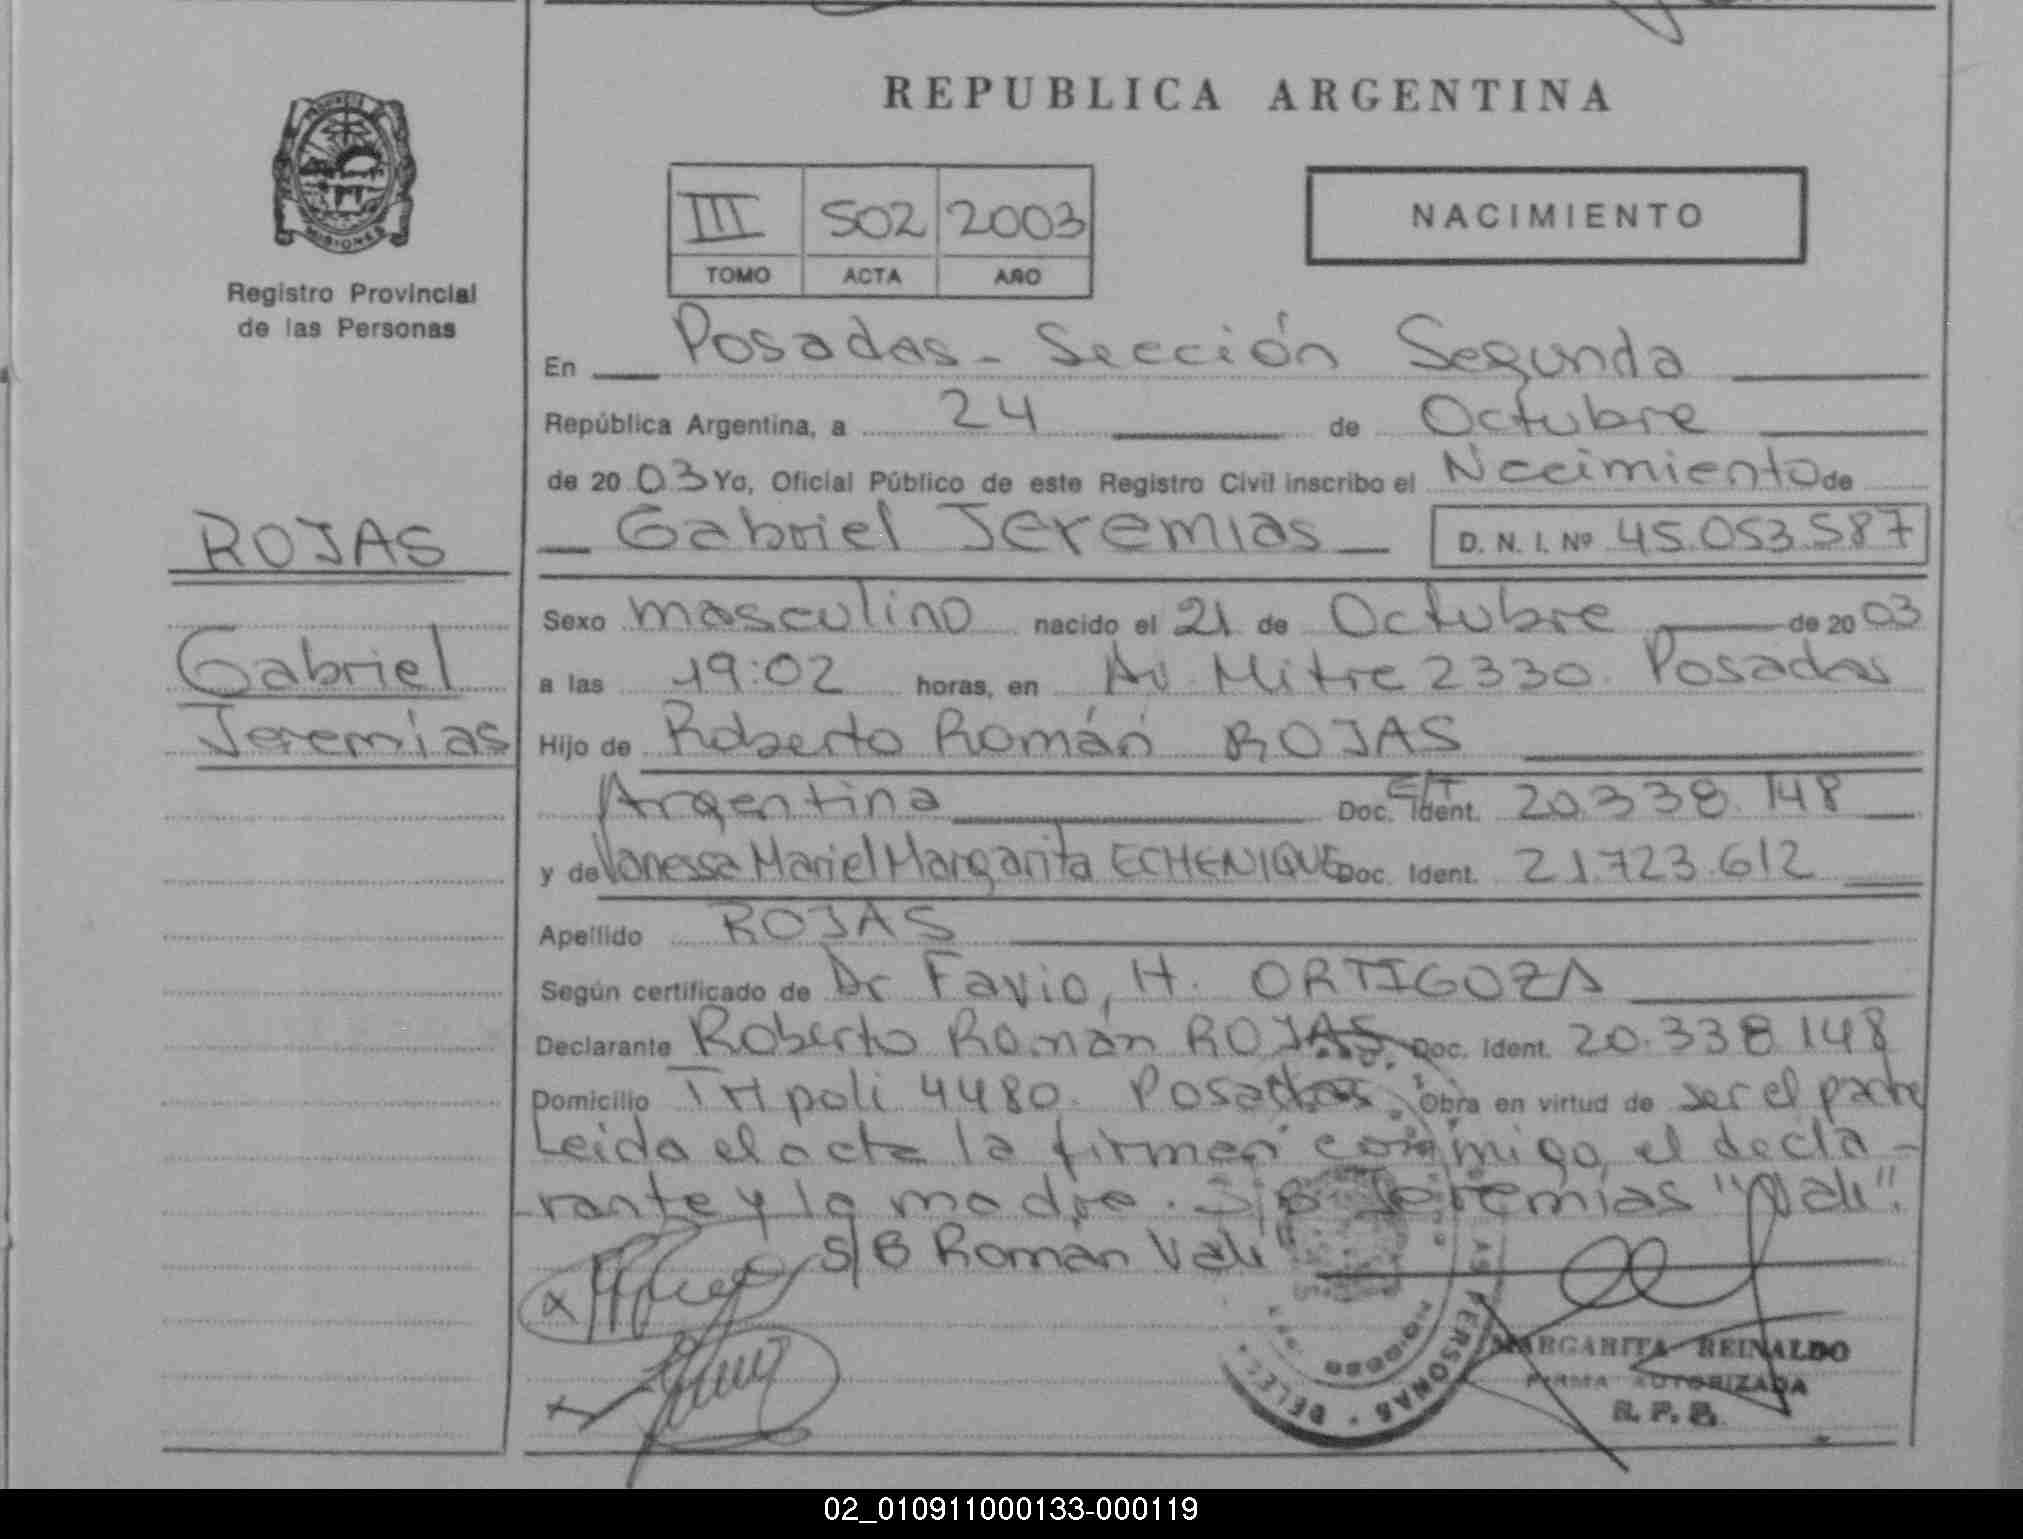 REPUBLICA ARGENTINA
MISIONES
Registro Provincial
de las Personas
III 502 2003
TOMO ACTA AÑO
NACIMIENTO
En Posadas - Sección Segunda
República Argentina, a 24 de Octubre
de 20 03 Yo, Oficial Público de este Registro Civil inscribo el Nacimiento de
Gabriel Jeremias D. N. I. Nº 45.053.587
ROJAS
Gabriel
Jeremías
Sexo masculino nacido el 21 de Octubre de 20 03
a las 19:02 horas, en Av. Mitre 2330. Posadas
Hijo de Roberto Román ROJAS
Argentina Doc. Ident. 20.338.148
y de Vanessa Mariel Margarita ECHENIQUE Doc. Ident. 21.723.612
Apellido ROJAS
Según certificado de Dr Favio, H. ORTIGOZA
Declarante Roberto Román ROJAS Doc. Ident. 20.338.148
Domicilio Tripoli 4480. Posadas. Obra en virtud de ser el padre
Leida el acta la firman conmigo, el decla-
rante y la madre. S/B Jeremías "Vale".
S/B Román Vale"
PERSONAS
MARGARITA REINALDO
FIRMA AUTORIZADA
R. P. P.
02_010911000133-000119